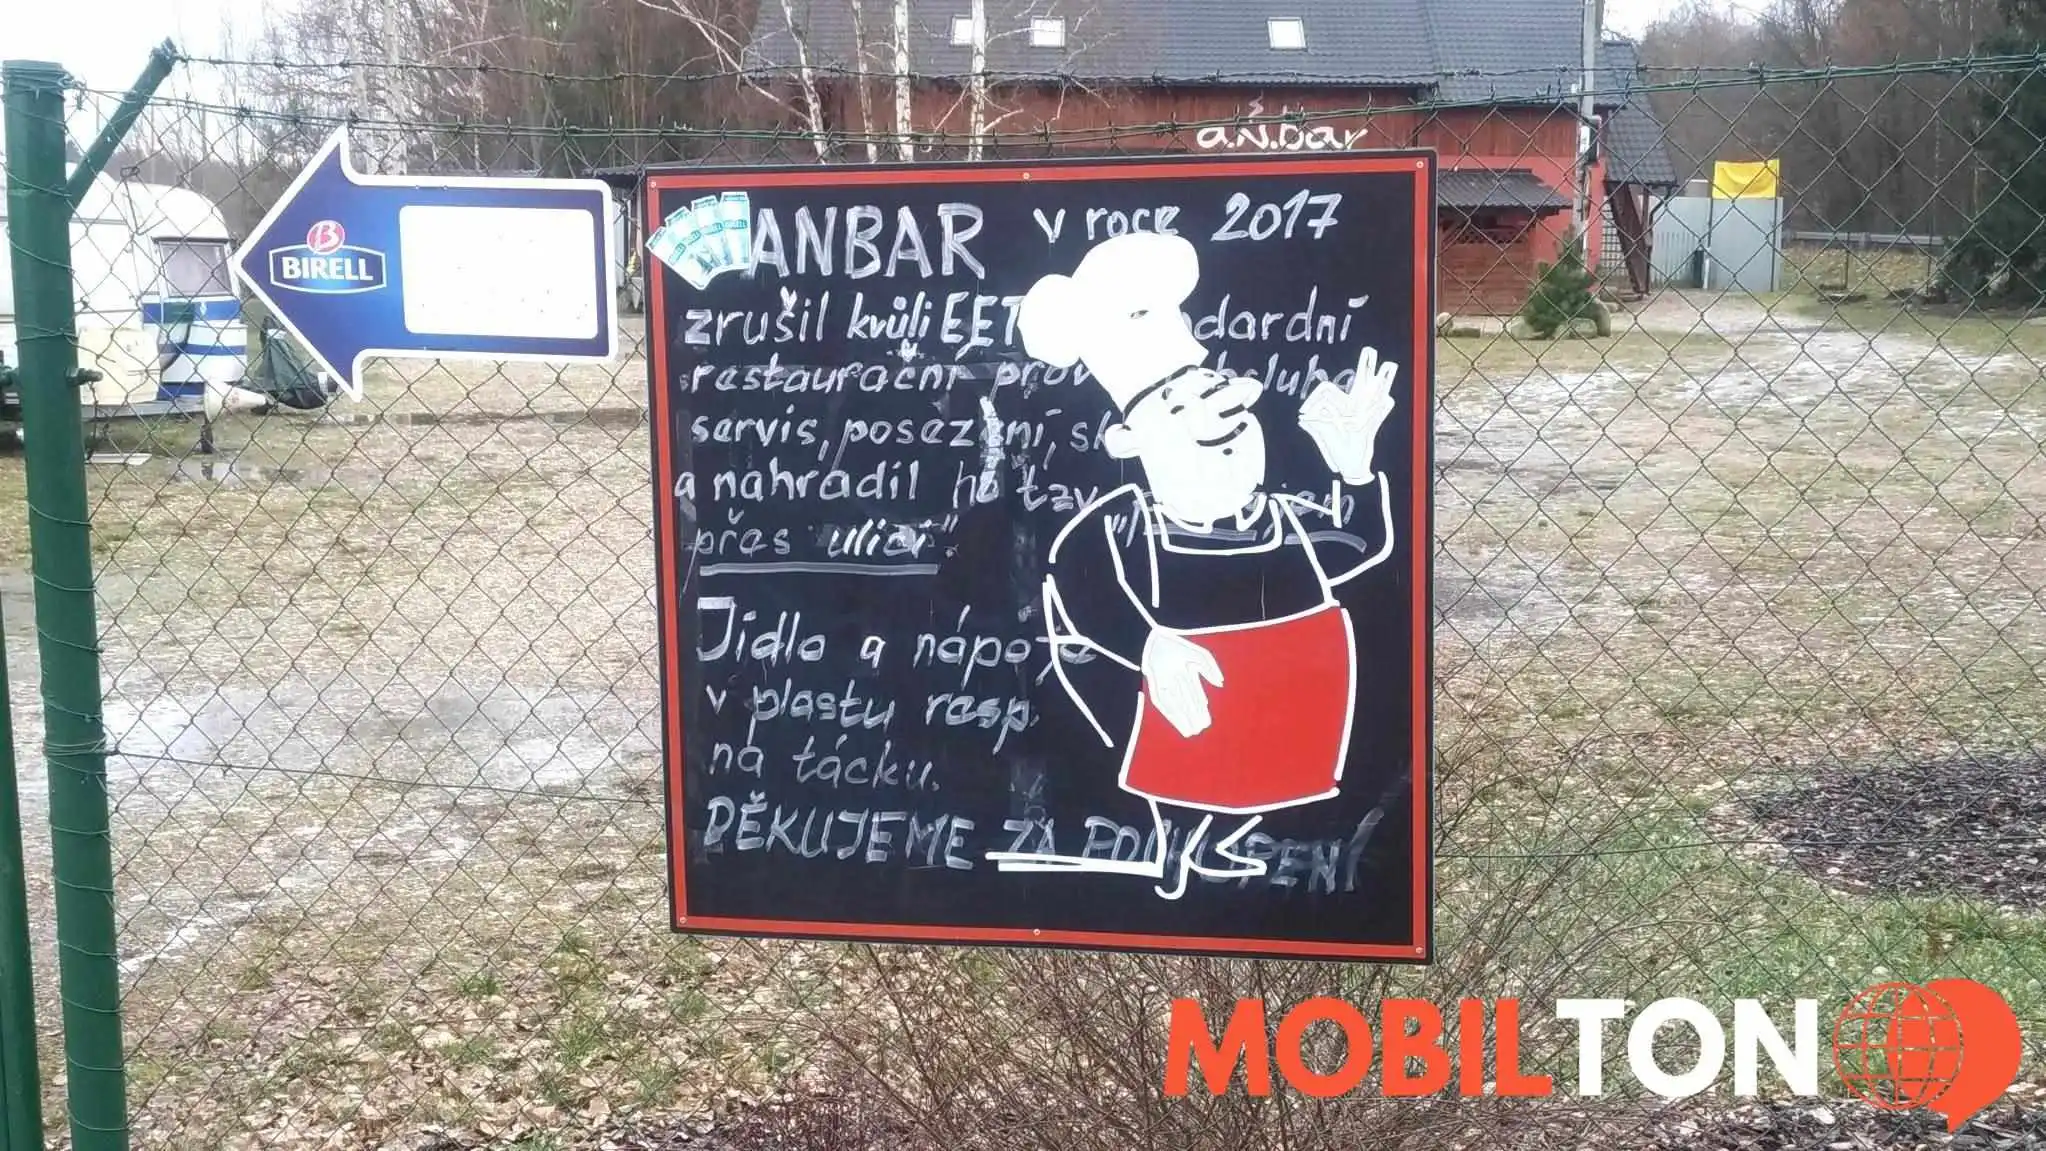 a.N.bar
BIRELL
ANBAR v roce 2017
zrušil kvůli EET
restaurační
servis, posezení,
a nahradil ho tzv
přes ulici".
Jídlo a nápoje
v plastu resp.
na tácku.
DĚKUJEME ZA POCHOPENÍ
MOBILTON